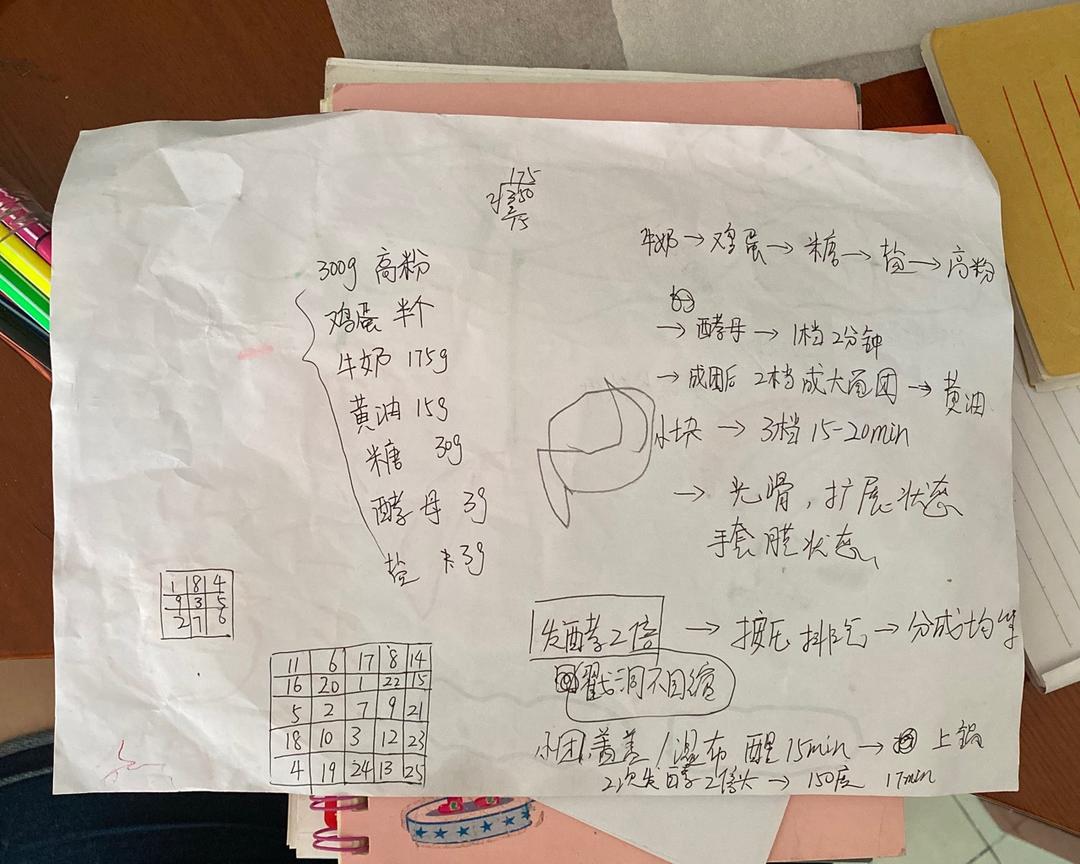 175
2√350
2
15
300g 高粉
鸡蛋 半个
牛奶 175g
黄油 15g
糖 30g
酵母 3g
盐 3g
1 8 4
9 3 5
2 7 6
11 6 17 8 14
16 20 1 22 15
5 2 7 9 21
18 10 3 12 23
4 19 24 13 25
牛奶→鸡蛋→糖→盐→高粉
→酵母→1档2分钟
→成团后 2档成大面团→黄油
小块→3档 15-20min
→光滑,扩展状态
手套膜状态
发酵2倍→按压排气→分成均等
戳洞不回缩
小团,盖盖/湿布 醒15min→上锅
2次发酵2倍大→150度 17min